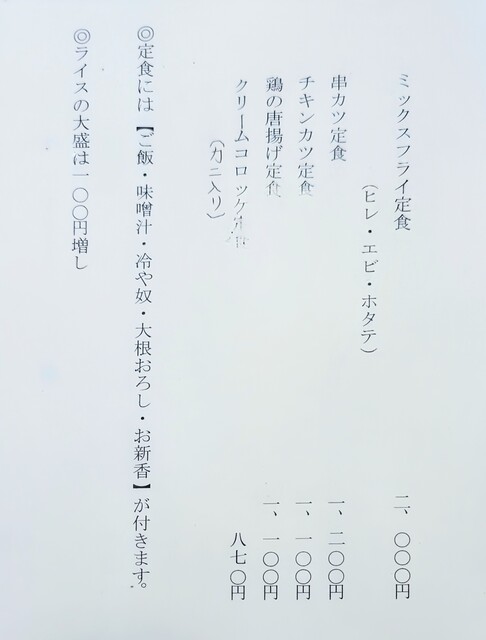 ミックスフライ定食 二、〇〇〇円
(ヒレ・エビ・ホタテ)
串カツ定食 一、二〇〇円
チキンカツ定食 一、一〇〇円
鶏の唐揚げ定食 一、一〇〇円
クリームコロッケ定食 八七〇円
(カニ入り)
◎定食には【ご飯・味噌汁・冷や奴・大根おろし・お新香】が付きます。
◎ライスの大盛は一〇〇円増し